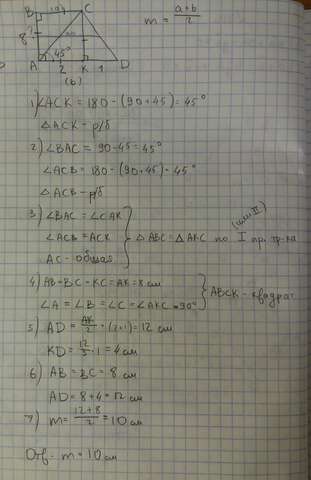 B (a) C
m = a+b/2
8?
45°
A 2 K 1 D
(b)
1) ∠ACK = 180 - (90+45) = 45°
△ACK - р/б
2) ∠BAC = 90-45 = 45°
∠ACB = 180 - (90+45) = 45°
△ACB - р/б
3) ∠BAC = ∠CAK
(или II)
∠ACB = ACK } △ABC = △AKC по I пр. тр-ка
AC - общая
4) AB=BC=KC=AK=8 см
∠A = ∠B = ∠C = ∠AKC = 90° } ABCK - квадрат
5) AD = AK/2 · (2+1) = 12 см
KD = 12/3 · 1 = 4 см
6) AB = BC = 8 см
AD = 8+4 = 12 см
7) m = 12+8/2 = 10 см
Отв - m = 10 см